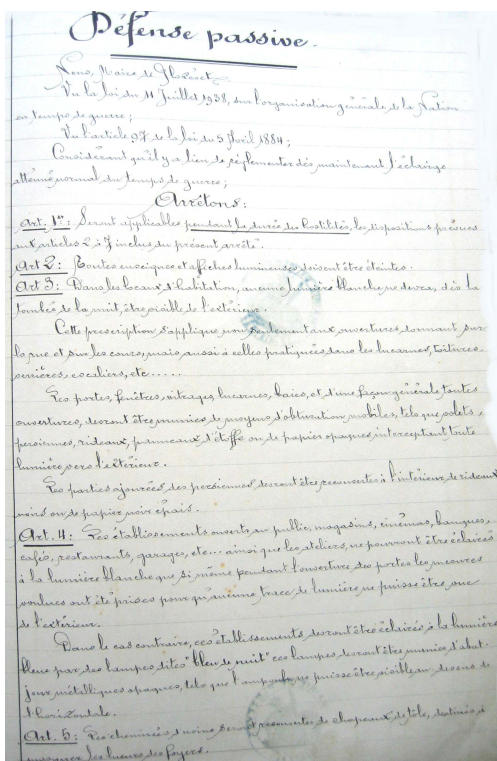 Défense passive.
Nous, Maire de
Vu la loi du 11 Juillet 1938, sur l'organisation générale de la Nation
en temps de guerre;
Vu l'article 97 de la loi du 5 Avril 1884;
Considérant qu'il y a lieu de réglementer dès maintenant l'éclairage
atténué normal du temps de guerre;
Arrêtons:
Art. 1er: Seront applicables pendant la durée des hostilités, les dispositions prévues
aux articles 2 à 7 inclus du présent arrêté.
Art 2: Toutes enseignes et affiches lumineuses doivent être éteintes.
Art 3: Dans les locaux d'habitation, aucune lumière blanche ne devra, dès la
tombée de la nuit, être visible de l'extérieur.
Cette prescription s'applique non seulement aux ouvertures donnant sur
la rue et sur les cours, mais aussi à celles pratiquées dans les lucarnes, toitures
verrières, escaliers, etc.....
Les portes, fenêtres, vitrages lucarnes, baies, et d'une façon générale toutes
ouvertures, devront être munies de moyens d'obturation mobiles, tels que volets,
persiennes, rideaux, panneaux d'étoffe ou de papier opaques interceptant toute
lumière vers l'extérieur.
Les parties ajourées des persiennes devront être recouvertes à l'intérieur de rideaux
noirs ou de papier noir épais.
Art. 4: Les établissements ouverts au public, magasins, cinémas, banques,
cafés, restaurants, garages, etc... ainsi que les ateliers, ne pourront être éclairés
à la lumière blanche que si même pendant l'ouverture des portes les mesures
voulues ont été prises pour qu'aucune trace de lumière ne puisse être vue
de l'extérieur.
Dans le cas contraire, ces établissements devront être éclairés à la lumière
bleue par des lampes dites "bleu de nuit" ces lampes devront être munies d'abat-
jour métalliques opaques, tels que l'ampoule ne puisse être visible au-dessus de
l'horizontale.
Art. 5: Les cheminées d'usine seront recouvertes de chapeaux de tôle, destinés à
masquer les lueurs des foyers.